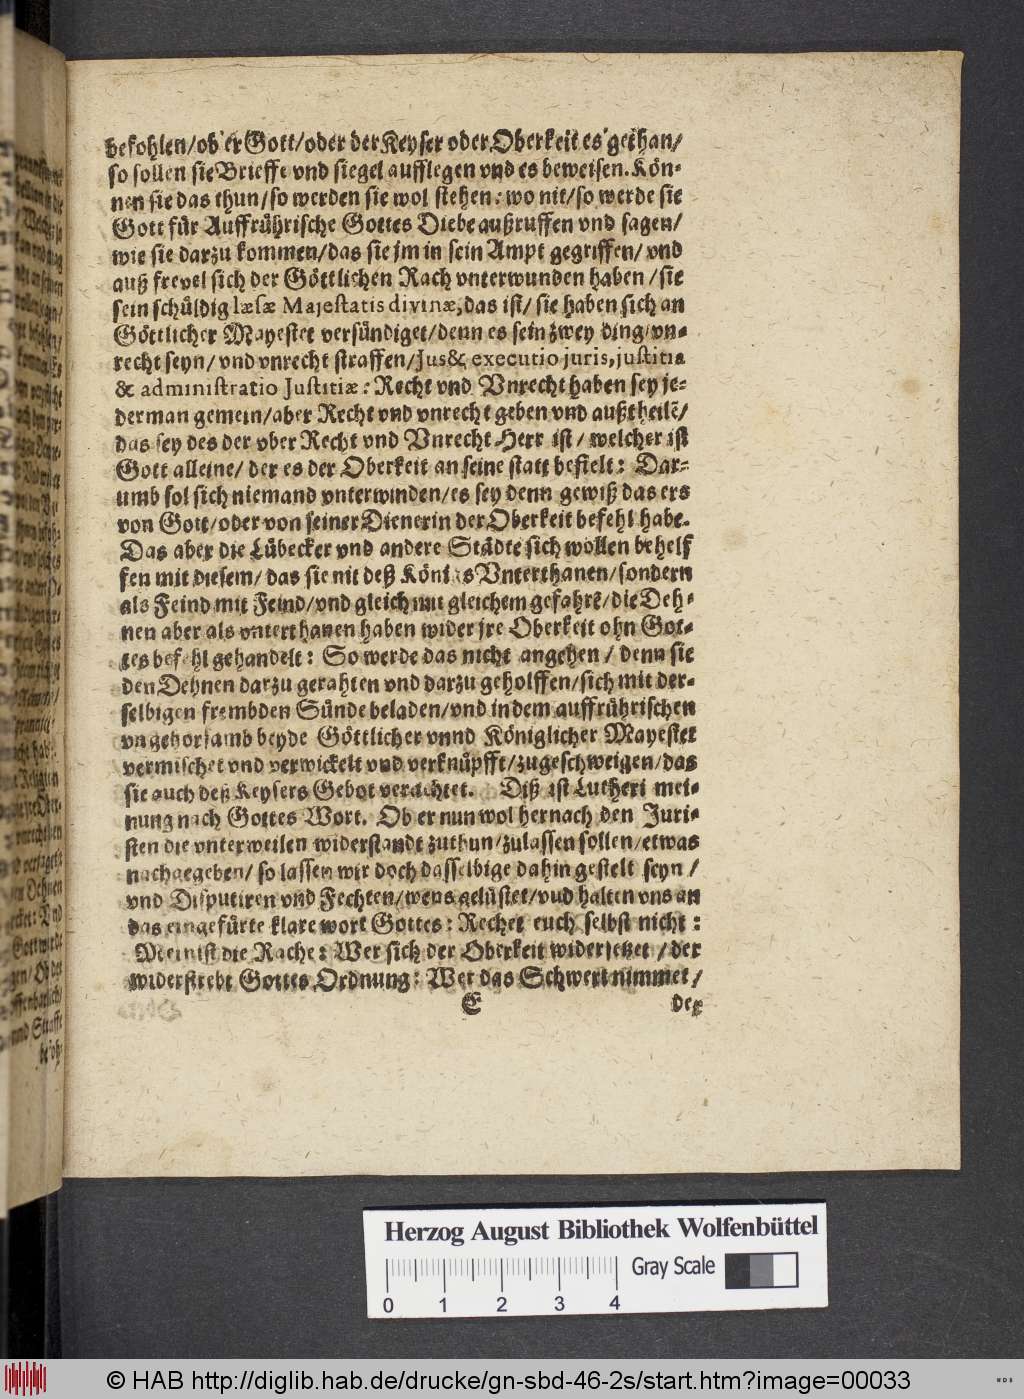 befohlen/ob er Gott/oder der Keyser oder Oberkeit es gethan/
so sollen sie Brieffe vnd siegel aufflegen vnd es beweisen. Kön-
nen sie das thun/so werden sie wol stehen: wo nit/so werde sie
Gott für Auffrührische Gottes Diebe außruffen vnd sagen/
wie sie darzu kommen/das sie jm in sein Ampt gegriffen/vnd
auß frevel sich der Göttlichen Rach vnterwunden haben/sie
sein schüldig læsæ Majestatis divinæ, das ist/sie haben sich an
Göttlicher Mayestet versündiget/denn es sein zwey ding/vn-
recht seyn/vnd vnrecht straffen/Jus & executio juris, justitia
& administratio Justitiæ: Recht vnd Vnrecht haben sey je-
derman gemein/aber Recht vnd vnrecht geben vnd außtheilẽ/
das sey des der vber Recht vnd Vnrecht Herr ist/welcher ist
Gott alleine/der es der Oberkeit an seine statt befielt: Dar-
umb sol sich niemand vnterwinden/es sey denn gewiß das ers
von Gott/oder von seiner Dienerin der Oberkeit befehl habe.
Das aber die Lübecker vnd andere Städte sich wollen behelf
fen mit diesem/das sie nit deß Königs Vnterthanen/sondern
als Feind mit Feind/vnd gleich mit gleichem gefahrẽ/die Deh-
nen aber als vnterthanen haben wider jre Oberkeit ohn Got-
tes befehl gehandelt: So werde das nicht angehen/denn sie
den Dehnen darzu gerahten vnd darzu geholffen/sich mit der-
selbigen frembden Sünde beladen/vnd in dem auffrührischen
vngehorsamb beyde Göttlicher vnnd Königlicher Mayestet
vermischet vnd verwickelt vnd verknüpfft/zugeschweigen/das
sie auch deß Keysers Gebot verachtet. Diß ist Lutheri mei-
nung nach Gottes Wort. Ob er nun wol hernach den Juri-
sten die vnterweilen widerstandt zuthun/zulassen sollen/etwas
nachgegeben/so lassen wir doch dasselbige dahin gestelt seyn/
vnd Disputiren vnd Fechten/wens gelüstet/vnd halten vns an
das eingefürte klare wort Gottes: Rechet euch selbst nicht:
Mein ist die Rache: Wer sich der Oberkeit widersetzet/der
widerstrebt Gottes Ordnung: Wer das Schwert nimmet/
E der
Herzog August Bibliothek Wolfenbüttel
Gray Scale
0 1 2 3 4
© HAB http://diglib.hab.de/drucke/gn-sbd-46-2s/start.htm?image=00033